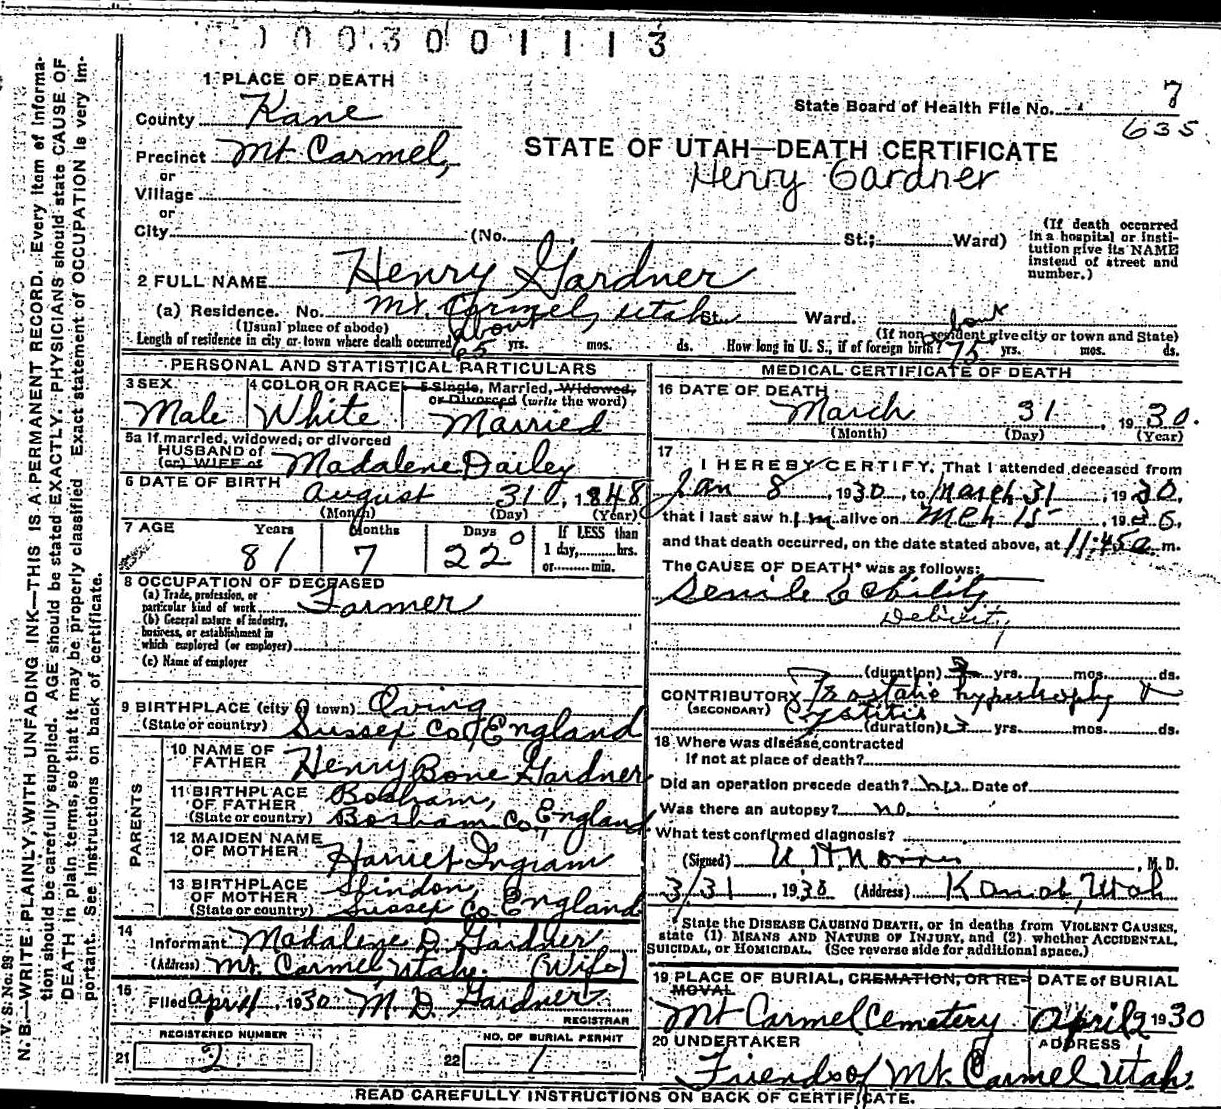 003001113
1 PLACE OF DEATH
County Kane
State Board of Health File No. 7
635
Precinct Mt. Carmel,
or
STATE OF UTAH—DEATH CERTIFICATE
Henry Gardner
Village
or
City (No. , St.; Ward)
(If death occurred in a hospital or institution give its NAME instead of street and number.)
2 FULL NAME Henry Gardner
(a) Residence. No. Mt. Carmel, Utah St. Ward.
(Usual place of abode) (If non-resident give city or town and State)
Length of residence in city or town where death occurred about 65 yrs. mos. ds. How long in U. S., if of foreign birth? about 75 yrs. mos. ds.
PERSONAL AND STATISTICAL PARTICULARS
3 SEX Male
4 COLOR OR RACE White
5 Single, Married, Widowed, or Divorced (write the word) Married
5a If married, widowed, or divorced
HUSBAND of
(or) WIFE of Madalene Dailey
6 DATE OF BIRTH August 31, 1848
(Month) (Day) (Year)
7 AGE Years Months Days If LESS than
81 7 22 0 1 day, hrs.
or min.
8 OCCUPATION OF DECEASED
(a) Trade, profession, or particular kind of work Farmer
(b) General nature of industry, business, or establishment in which employed (or employer)
(c) Name of employer
9 BIRTHPLACE (city or town) Oving
(State or country) Sussex Co, England
PARENTS
10 NAME OF FATHER Henry Bone Gardner
11 BIRTHPLACE OF FATHER Bosham,
(State or country) Bosham Co, England
12 MAIDEN NAME OF MOTHER Harriet Ingram
13 BIRTHPLACE OF MOTHER Slindon,
(State or country) Sussex Co, England
14
Informant Madalene D. Gardner
(Address) Mt. Carmel Utah. (Wife)
15
Filed April 1930 M. D. Gardner
REGISTRAR
REGISTERED NUMBER NO. OF BURIAL PERMIT
21 2 22 1
MEDICAL CERTIFICATE OF DEATH
16 DATE OF DEATH
March 31, 1930.
(Month) (Day) (Year)
17
I HEREBY CERTIFY, That I attended deceased from
Jan 8, 1930, to March 31, 1930,
that I last saw him alive on Mch 15, 1930,
and that death occurred, on the date stated above, at 11:45 a. m.
The CAUSE OF DEATH* was as follows:
Senile debility
Debility
(duration) yrs. mos. ds.
CONTRIBUTORY Prostatic hypertrophy &
(SECONDARY) Cystitis
(duration) 3 yrs. mos. ds.
18 Where was disease contracted
If not at place of death?
Did an operation precede death? no Date of
Was there an autopsy? no.
What test confirmed diagnosis?
(Signed) Norris, M. D.
3/31, 1930 (Address) Kanab, Utah
* State the DISEASE CAUSING DEATH, or in deaths from VIOLENT CAUSES,
state (1) MEANS AND NATURE OF INJURY, and (2) whether ACCIDENTAL,
SUICIDAL, OR HOMICIDAL. (See reverse side for additional space.)
19 PLACE OF BURIAL, CREMATION, OR REMOVAL DATE OF BURIAL
Mt Carmel Cemetery April 2 1930
20 UNDERTAKER ADDRESS
Friends of Mt. Carmel Utah.
READ CAREFULLY INSTRUCTIONS ON BACK OF CERTIFICATE.
V. S. No.
N. B.—WRITE PLAINLY, WITH UNFADING INK—THIS IS A PERMANENT RECORD. Every item of information should be carefully supplied. AGE should be stated EXACTLY. PHYSICIANS should state CAUSE OF DEATH in plain terms, so that it may be properly classified. Exact statement of OCCUPATION is very important. See instructions on back of certificate.